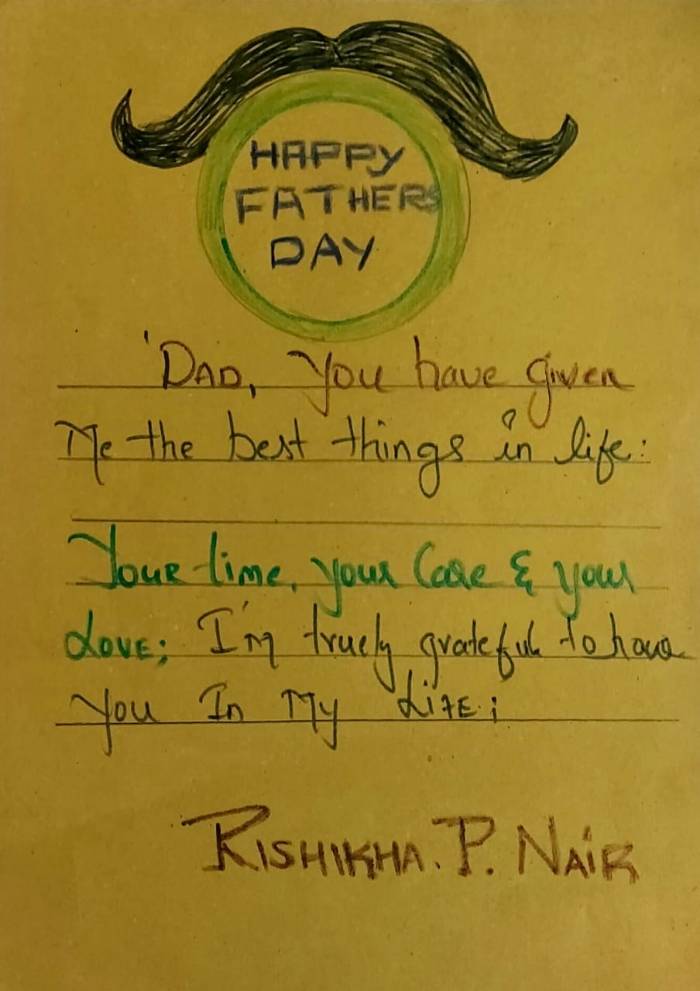 HAPPY
FATHERS
DAY
'DAD, You have given
Me the best things in life:
Your time, your Care & your
LOVE; I'm truely grateful to have
You In My LiFE;
RISHIKHA. P. NAIR